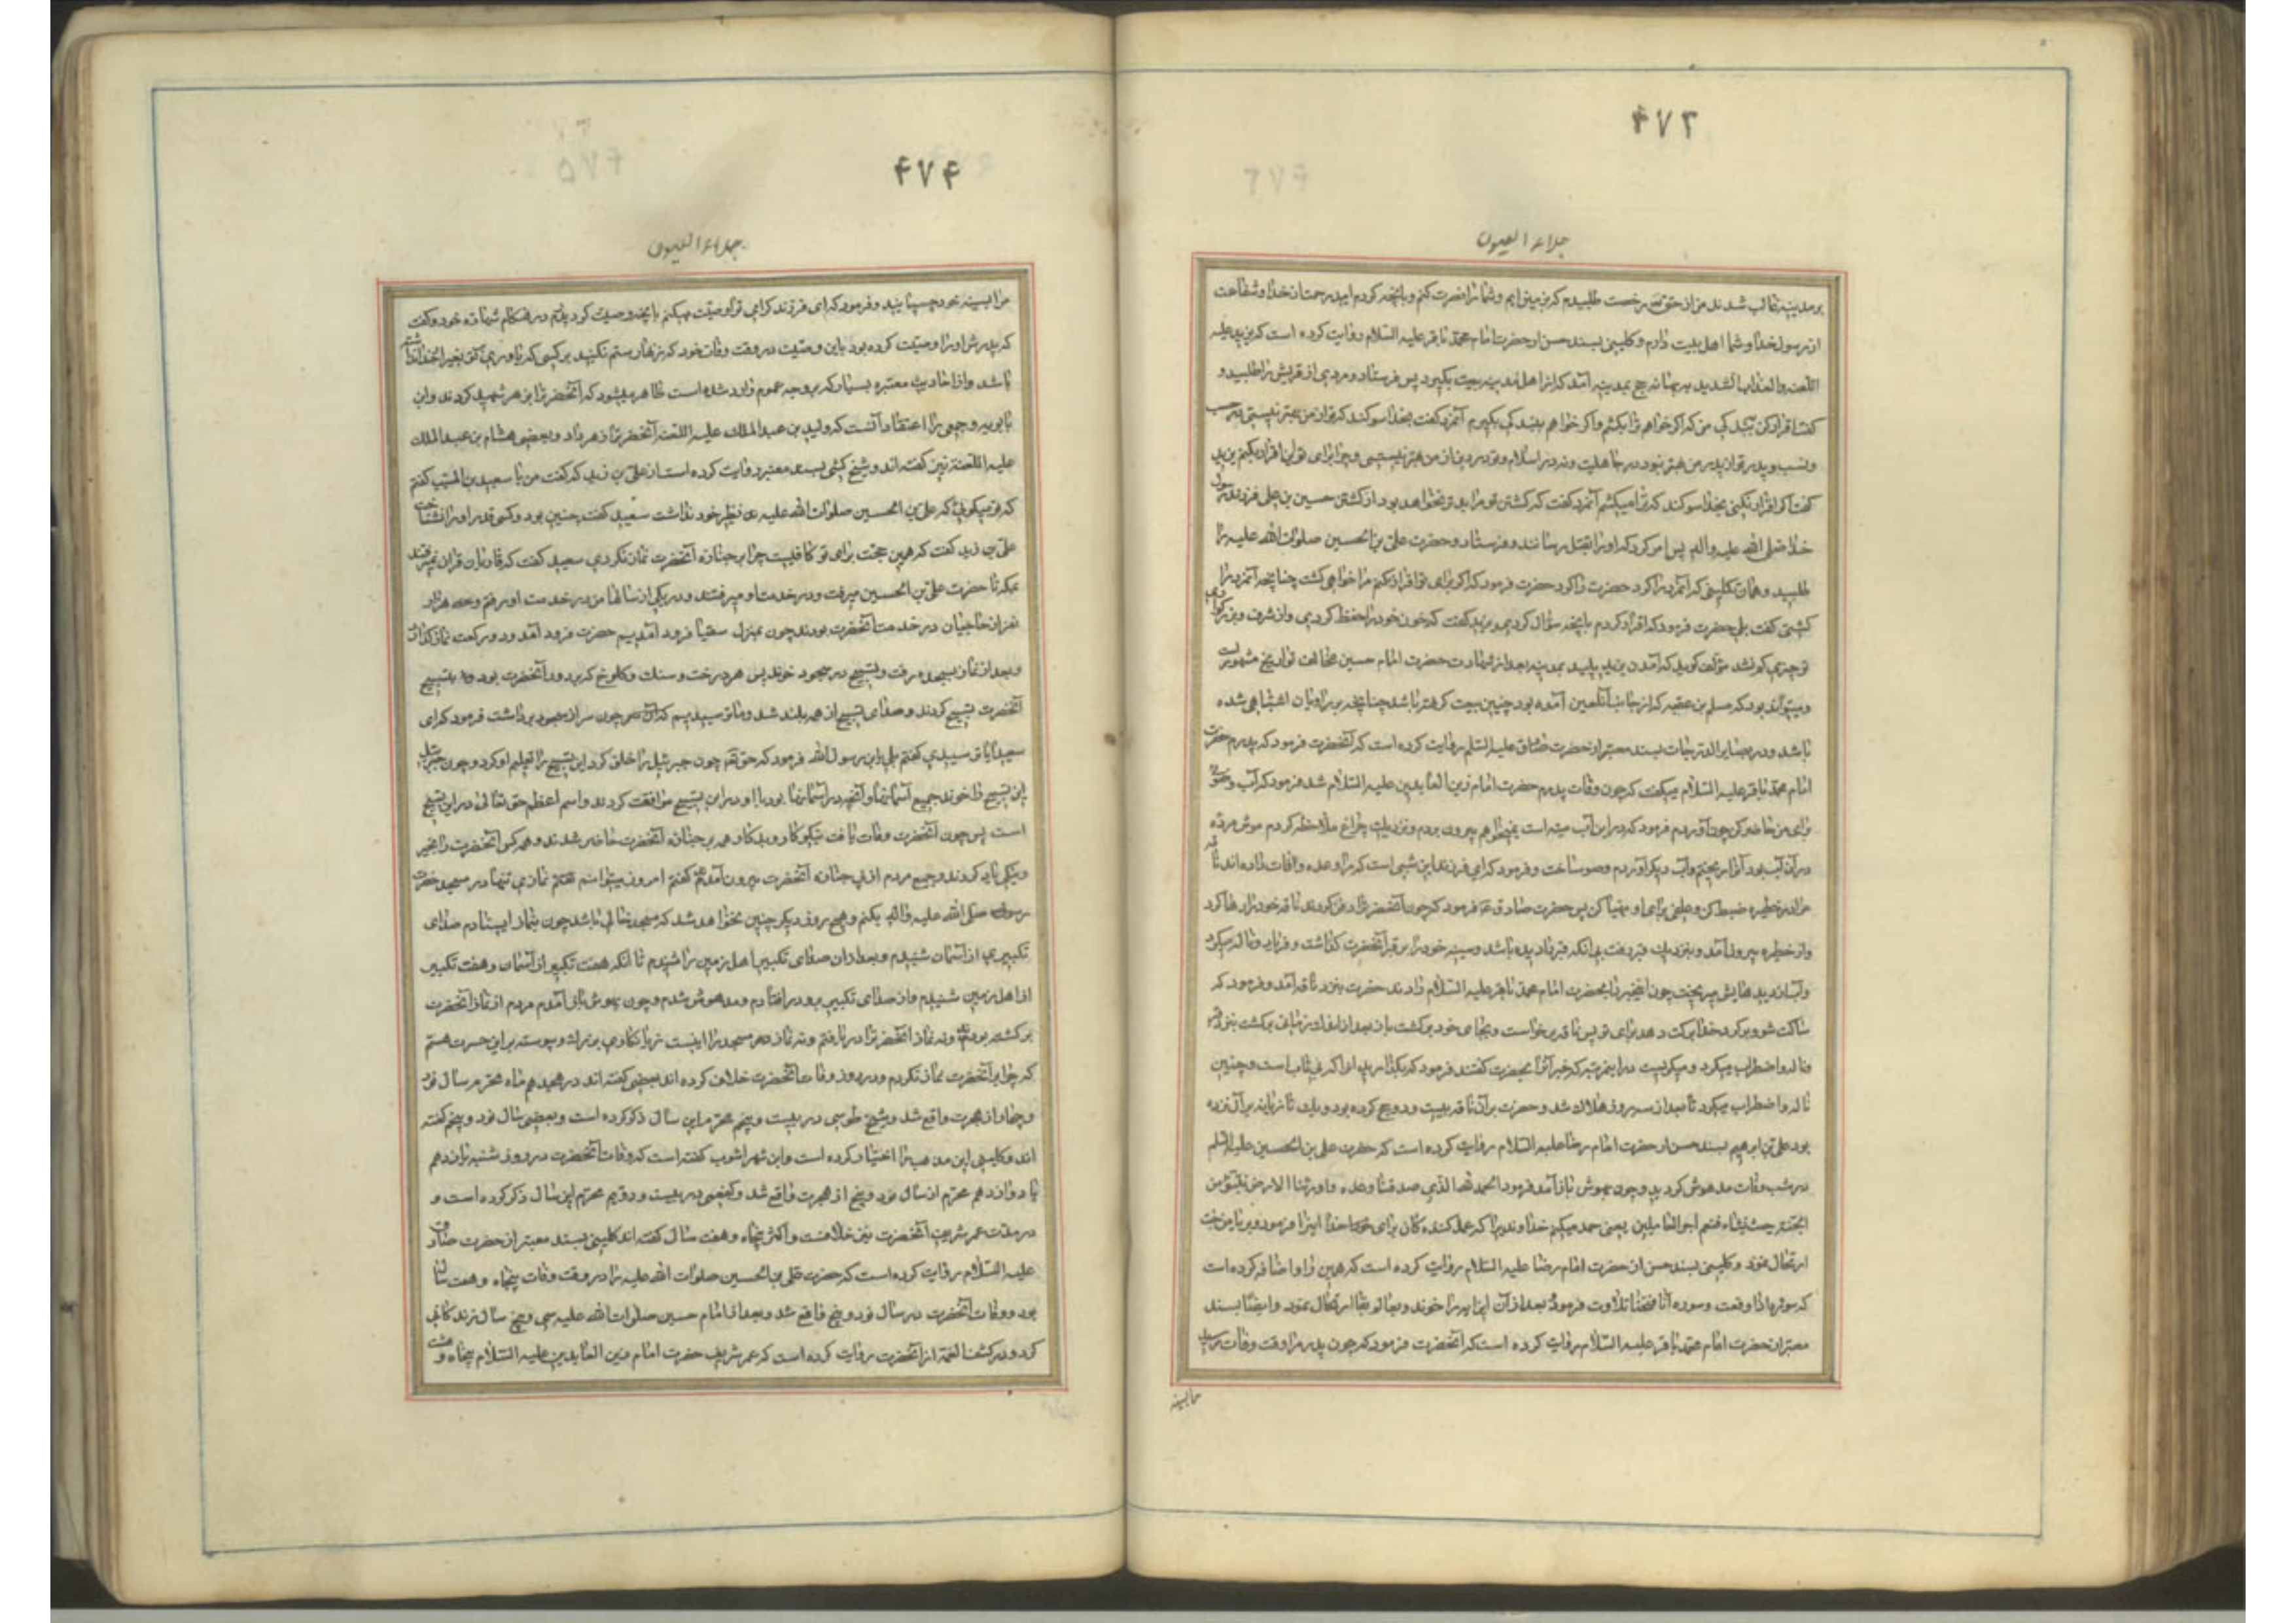 ۴۷۳
جلاء العیون
بر مدینه غالب شدند من از حق تعم رخصت طلبیدم که بزمین ایم و شما را نصرت کنم و بانچه کردم امید رحمت از خدا و شفاعت
از رسول خدا و شما اهل بیت دارم و کلینی بسند حسن از حضرت امام محمد باقر علیه السلام روایت کرده است که یزید علیه
اللعنه والعذاب الشدید ببهانه حج بمدینه آمد که از اهل مدینه بیعت بگیرد پس فرستاد و مردی از قریش را طلبید و
گفت اقرار کن ببندگی من که اگر خواهم ترا بکشم و اگر خواهم ببندگی بگیرم آنمرد گفت بخدا سوگند که تو از من بهتر نیستی در حسب
و نسب و پدر تو از پدر من بهتر نبود در جاهلیت و نه در اسلام و تو در دین از من بهتر نیستی و چرا برای تو این اقرار بکنم یزید
گفت اگر اقرار نکنی بخدا سوگند که ترا میکشم آنمرد گفت که کشتن تو مرا بدتر نخواهد بود از کشتن حسین بن علی فرزند رسول
خدا صلی الله علیه واله پس امر کرد که او را بقتل رسانند و فرستاد و حضرت علی بن الحسین صلوات الله علیه را
طلبید و همان تکلیفی که آنمرد را کرد حضرت را کرد حضرت فرمود که اگر برای تو اقرار نکنم مرا خواهی کشت چنانچه آنمرد را
کشتی گفت بلی حضرت فرمود که اقرار کردم بانچه سؤال کردی یزید گفت که خون خود را حفظ کردی و از شرف و بزرگواری
تو چیزی کم نشد مؤلف گوید که آمدن یزید پلید بمدینه بعد از شهادت حضرت امام حسین مخالف تواریخ مشهور است
و میتواند بود که مسلم بن عقبه که از جانب آنلعین آمده بود چنین بیعت گرفته باشد چنانچه بر راویان اشتباهی شده
باشد و در بصایر الدرجات بسند معتبر از حضرت صادق علیه السلم روایت کرده است که آنحضرت فرمود که پدرم حضرت
امام محمد باقر علیه السلام میگفت که چون وفات پدرم حضرت امام زین العابدین علیه السلام شد فرمود که آب وضوی
برای من حاضر کن چون آوردم فرمود که در این آب میته است نمیخواهم بیرون بردم و نزدیک چراغ ملاحظه کردم موش مرده
در آن آب بود آنرا ریختم و آب دیگر آوردم وضو ساخت و فرمود که ای فرزند این شبی است که مرا وعده وفات داده اند ناقه
مرا در حظیره ضبط کن و علفی برای او مهیا کن پس حضرت صادق ع فرمود که چون آنحضرت را دفن کردند ناقه خود را رها کرد
و از حظیره بیرون آمد و بنزدیک قبر رفت بی انکه قبر را دیده باشد و سینه خود را بر قبر آنحضرت گذاشت و فریاد و ناله میکرد
و آب از دیدهایش میریخت چون اینخبر را بحضرت امام محمد باقر علیه السلام دادند حضرت بنزد ناقه آمد و فرمود که
ساکت شو و برگرد خدا برکت دهد برای تو پس ناقه برخواست و بجای خود برگشت باز بعد از اندک زمانی برگشت بنزد قبر
و ناله و اضطراب میکرد و میگریست در اینمرتبه که خبر آنرا بحضرت گفتند فرمود که بگذارید او را که بی تاب است و چنین
ناله و اضطراب میکرد تا بعد از سه روز هلاک شد و حضرت بر آن ناقه بیست و دو حج کرده بود و یک تازیانه بر آن نزده
بود علی بن ابرهیم بسند حسن از حضرت امام رضا علیه السلام روایت کرده است که حضرت علی بن الحسین علیه السلم
در شب وفات مدهوش گردید و چون بهوش باز آمد فرمود الحمد لله الذی صدقنا وعده واورثنا الارض نتبؤ من
الجنة حیث نشاء فنعم اجر العاملین یعنی حمد میکنم خداوندیرا که
ارتحال نمود و کلینی بسند حسن از حضرت امام رضا علیه السلام روایت کرده است که همین را اضافه کرده است
که سوره اذا وقعت و سوره انا فتحنا تلاوت فرمود بعد از آن این ایه را خوند و بعالم بقا ارتحال نمود و ایضا بسند
معتبر از حضرت امام محمد باقر علیه السلام روایت کرده است که آنحضرت فرمود که چون پدر مرا وقت وفات رسید
۴۷۴
جلاء العیون
مرا بسینه خود چسپانید و فرمود که ای فرزند گرامی تو را وصیت میکنم بانچه وصیت کرد پدرم در هنگام شهادت خود و گفت
که پدرش او را وصیت کرده بود باین وصیت در وقت وفات خود که زنهار ستم نکنید بر کسی که یاوری بر تو بغیر از خدا نداشته
باشد و از احادیث معتبره بسیار که بر وجه عموم وارد شده است ظاهر میشود که آنحضرت را بزهر شهید کردند و ابن
بابویه و جمعی را اعتقاد آنست که ولید بن عبد الملک علیه اللعنه آنحضرت را زهر داد و بعضی هشام بن عبد الملک
علیه اللعنة نیز گفته اند و شیخ کشی بسند معتبر روایت کرده است از علی بن زید که گفت من با سعید بن المسیب گفتم
که تو میگوئی که علی بن الحسین صلوات الله علیه نظیر خود نداشت سعید گفت چنین بود و کسی قدر او را نشناخت
علی بن زید گفت که همین حجت برای تو کافیست چرا بر جنازه آنحضرت نماز نکردی سعید گفت که قاریان قران نمیرفتند
بمکه تا حضرت علی بن الحسین میرفت و در خدمت او میرفتند و در یکی از سالها من در خدمت او رفتم و هزار
نفر از حاجیان در خدمت آنحضرت بودند چون بمنزل سقیا فرود آمدیم حضرت فرود آمد و دو رکعت نماز گذارد
و بعد از نماز بسجده رفت و تسبیح در سجود خوند پس هر درخت و سنک و کلوخ که بر دور آنحضرت بود بتسبیح
آنحضرت تسبیح کردند و صدای تسبیح از همه بلند شد و ما ترسیدیم چون سر از سجود برداشت فرمود که ای
سعید آیا ترسیدی گفتم بلی یابن رسول الله فرمود که حق تعم چون جبرئیل را خلق کرد این تسبیح را تعلیم او کرد و چون جبرئیل
این تسبیح را خوند جمیع آسمانها و آنچه در آسمانها بود با او در این تسبیح موافقت کردند و اسم اعظم حق تعالی در این تسبیح
است پس چون آنحضرت وفات یافت نیکوکار و بدکار همه بر جنازه آنحضرت حاضر شدند و همه کس آنحضرت را بخیر
و نیکی یاد کردند و جمیع مردم از پی جنازه آنحضرت بیرون آمدند گفتم امروز میتوانم نمازی تنها در مسجد حضرت
رسول صلی الله علیه واله بکنم و هیچ روز دیگر چنین نخواهد شد که مسجد خالی باشد چون بنماز ایستادم صدای
تکبیری از آسمان شنیدم و بعد از ان صدای تکبیر اهل زمین را شنیدم تا انکه هفت تکبیر از آسمان و هفت تکبیر
از اهل زمین شنیدم و از صدای تکبیر برو در افتادم و مدهوش شدم و چون بهوش باز آمدم مردم از نماز آنحضرت
برگشته بودند و نه نماز آنحضرت را دریافتم و نه نماز در مسجد را اینست زیانکاری بزرگ و پیوسته بر این حسرت هستم
که چرا بر آنحضرت نماز نکردم و در روز وفات آنحضرت خلاف کرده اند بعضی گفته اند در هیجدهم ماه محرم سال نود
و چهار از هجرت واقع شد و شیخ طوسی در بیست و پنجم محرم این سال ذکر کرده است و بعضی سال نود و پنجم گفته
اند و کلینی این مذهب را اختیار کرده است و ابن شهراشوب گفته است که وفات آنحضرت در روز شنبه یازدهم
یا دوازدهم محرم از سال نود و پنج از هجرت واقع شد و کفعمی در بیست و دویم محرم این سال ذکر کرده است و
در مدت عمر شریف آنحضرت نیز خلافست و اکثر پنجاه و هفت سال گفته اند کلینی بسند معتبر از حضرت صادق
علیه السلام روایت کرده است که حضرت علی بن الحسین صلوات الله علیه را در وقت وفات پنجاه و هفت سال
بود و وفات آنحضرت در سال نود و پنج واقع شد و بعد از امام حسین صلوات الله علیه سی و پنج سال زندگانی
کرد و در کشف الغمة از آنحضرت روایت کرده است که عمر شریف حضرت امام زین العابدین علیه السلام پنجاه و هشت